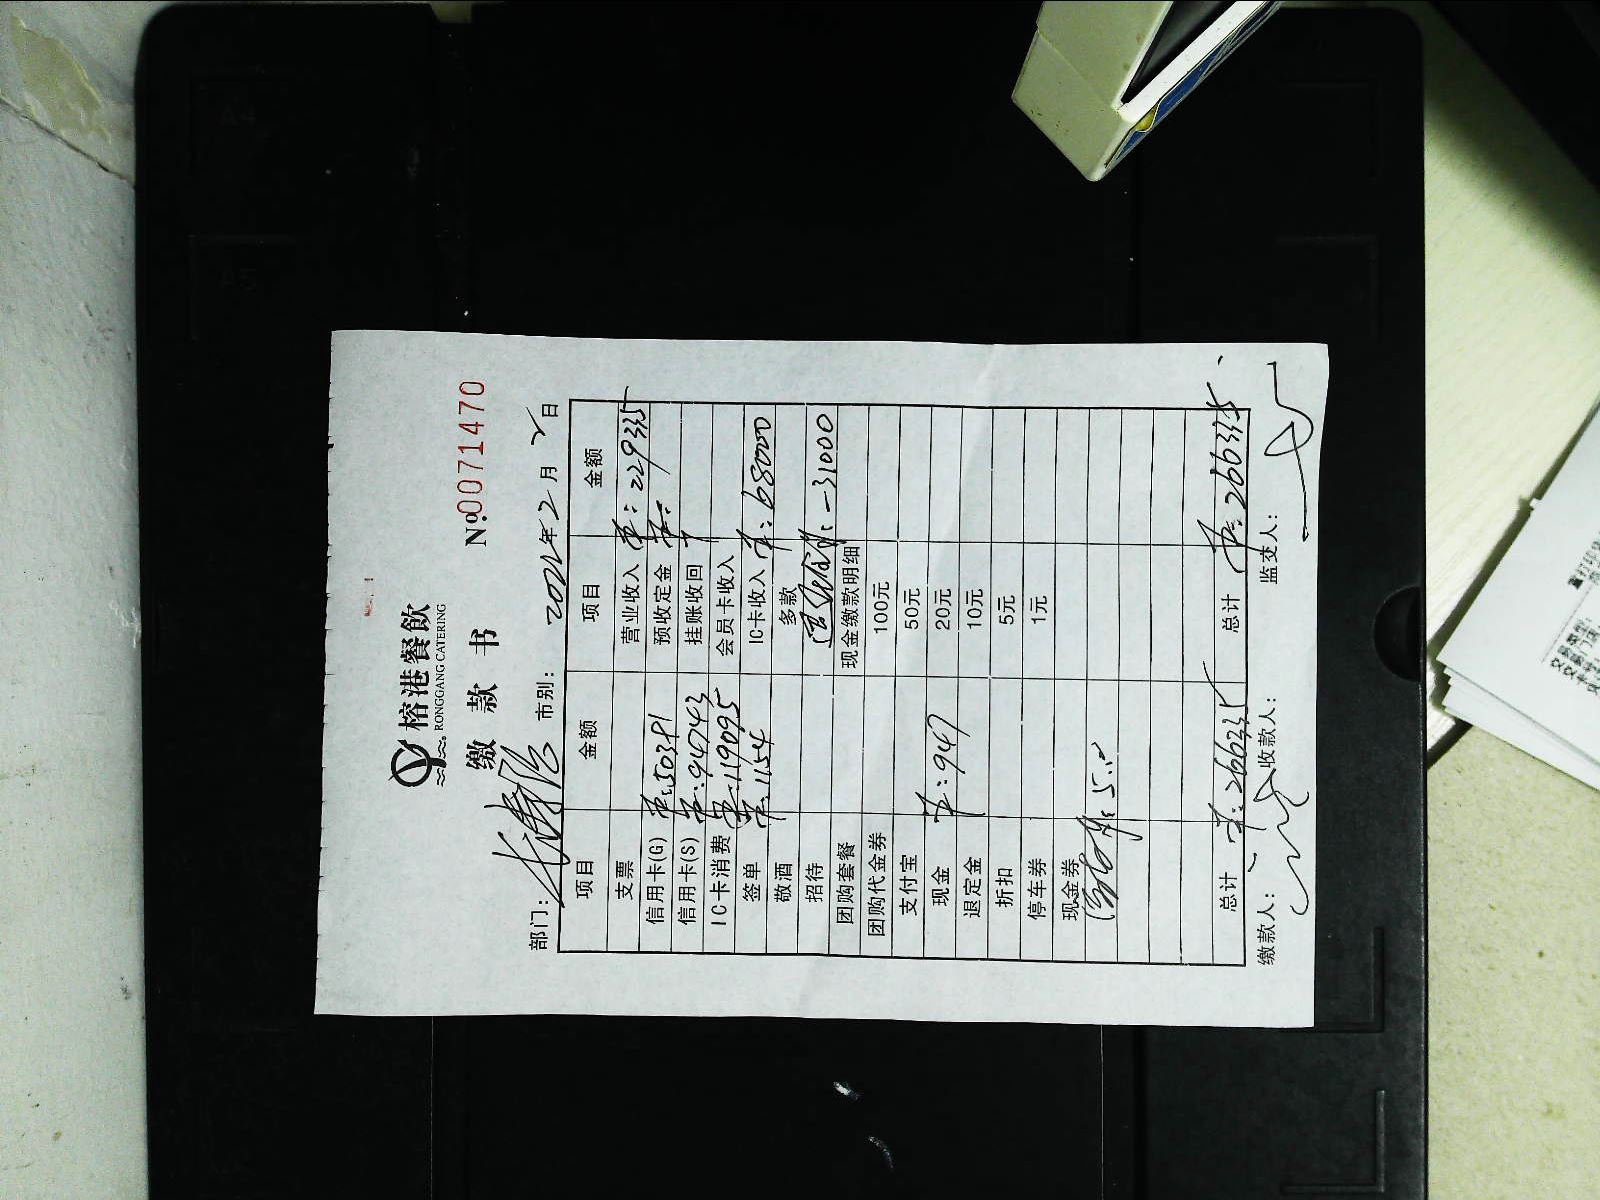 榕港餐飲
RONGGANG CATERING
缴 款 书 №0071470
部门： 市别： 2021年2月2日
项目 金额 项目 金额
支票 营业收入 单：229335
信用卡(G) 单：50391 预收定金 单：
信用卡(S) 单：94743 挂账收回
IC卡消费 单：119095 会员卡收入
签单 单：1154 IC卡收入 单：68000
敬酒 多款
招待 -31000
团购套餐 现金缴款明细
团购代金券 100元
支付宝 50元
现金 单：947 20元
退定金 10元
折扣 5元
停车券 1元
现金券
总计 单：266335 总计 单：266335
缴款人： 收款人： 监交人：
A4
A5